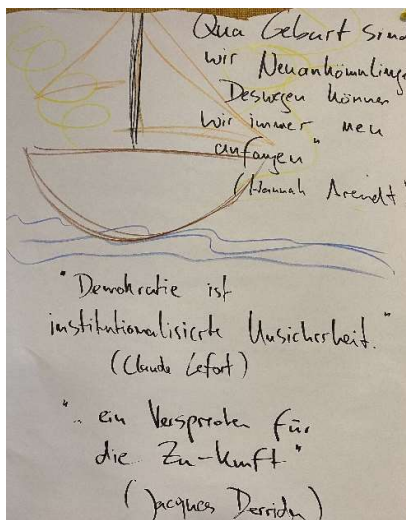 Qua Geburt sind
wir Neuankömmlinge
Deswegen können
wir immer neu
anfangen"
(Hannah Arendt"
"Demokratie ist
institutionalisierte Unsicherheit."
(Claude Lefort)
".. ein Versprechen für
die Zu-kunft"
(Jacques Derrida)